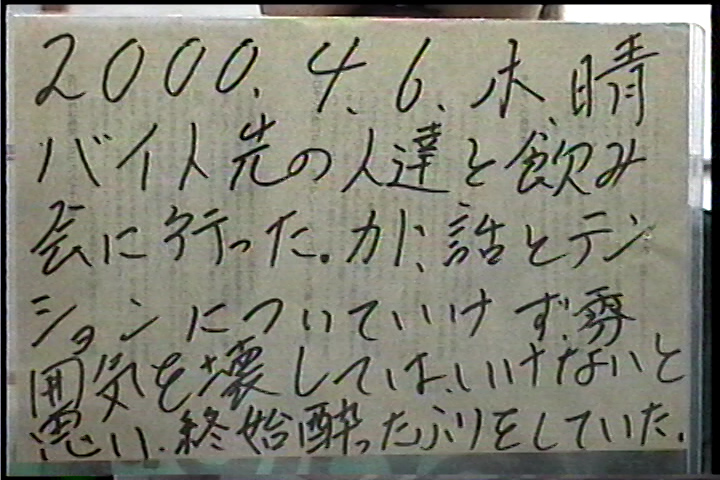 2000.4.6.木.晴
バイト先の人達と飲み
会に行った。が、話とテン
ションについていけず、雰
囲気を壊してはいけないと
思い、終始酔ったふりをしていた。